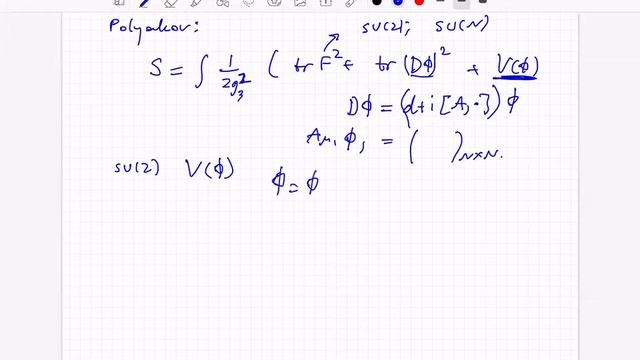 Polyakov: SU(2); SU(N)
S = ∫ 1/2g₃² ( tr F² + tr (DΦ)² + V(Φ)
DΦ = (d+i[A,·]) Φ
Aμ, Φ, = ( )N×N.
SU(2) V(Φ) Φ = Φ